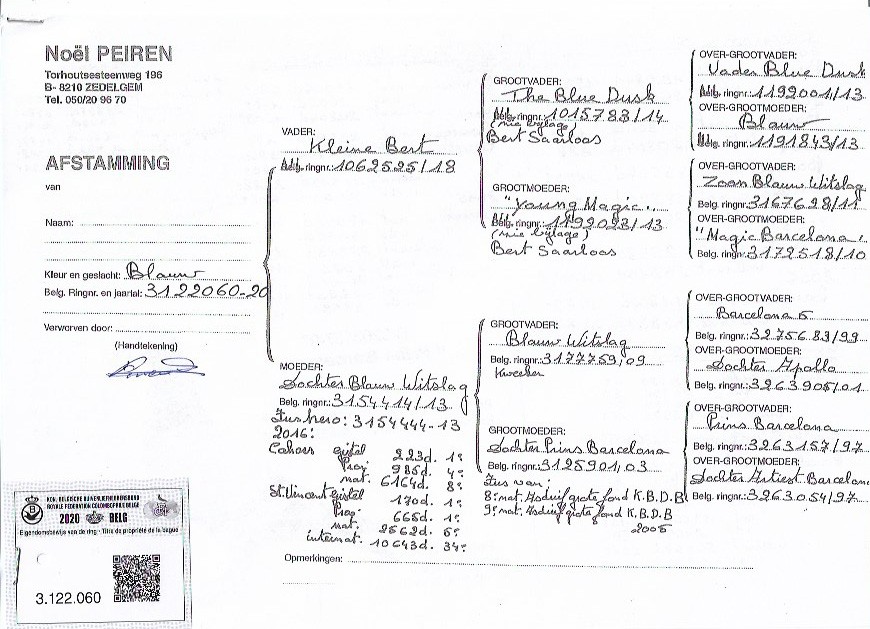 Noël PEIREN
Torhoutsesteenweg 196
B- 8210 ZEDELGEM
Tel. 050/20 96 70
AFSTAMMING
van
Naam:
Kleur en geslacht: Blauw
Belg. Ringnr. en jaartal: 3122060-20
Verworven door:
(Handtekening)
VADER:
Kleine Bert
ringnr.: 1062525/18
MOEDER:
Dochter Blauw Witslag
Belg. ringnr.: 3154414/13
Zus hero: 3154444-13
2016:
Cahors gistel 223d. 1e
Prov 985d. 4e
nat. 6164d. 8e
St Vincent gistel 170d. 1e
Prov. 665d. 1e
nat. 2562d. 6e
internat. 10643d. 34e
Opmerkingen:
GROOTVADER:
The Blue Dusk
ringnr.: 1015783/14
(zie bijlage)
Bert Saarloos
GROOTMOEDER:
"Young Magic"
ringnr.: 1192023/13
(zie bijlage)
Bert Saarloos
GROOTVADER:
Blauw Witslag
Belg. ringnr.: 3177759,09
Kweker
GROOTMOEDER:
Dochter Prins Barcelona
Belg. ringnr.: 3125901,03
Zus van:
8e nat. Asduif grote fond K.B.D.B
9e nat. Asduif grote fond K.B.D.B
2005
OVER-GROOTVADER:
Vader Blue Dusk
ringnr.: 1199001/13
OVER-GROOTMOEDER:
Blauw
Belg. ringnr.: 1191843/13
OVER-GROOTVADER:
Zoon Blauw Witslag
Belg. ringnr.: 3167628/11
OVER-GROOTMOEDER:
"Magic Barcelona"
Belg. ringnr.: 3172518/10
OVER-GROOTVADER:
Barcelona 5
Belg. ringnr.: 3275683/99
OVER-GROOTMOEDER:
Dochter Apollo
Belg. ringnr.: 3263905/01
OVER-GROOTVADER:
Prins Barcelona
Belg. ringnr.: 3263157/97
OVER-GROOTMOEDER:
Dochter Artiest Barcelona
Belg. ringnr.: 3263054/97
KON. BELGISCHE DUIVENLIEFHEBBERSBOND
ROYALE FEDERATION COLOMBOPHILE BELGE
2020 BELG
Eigendomsbewijs van de ring - Titre de propriété de la bague
3.122.060